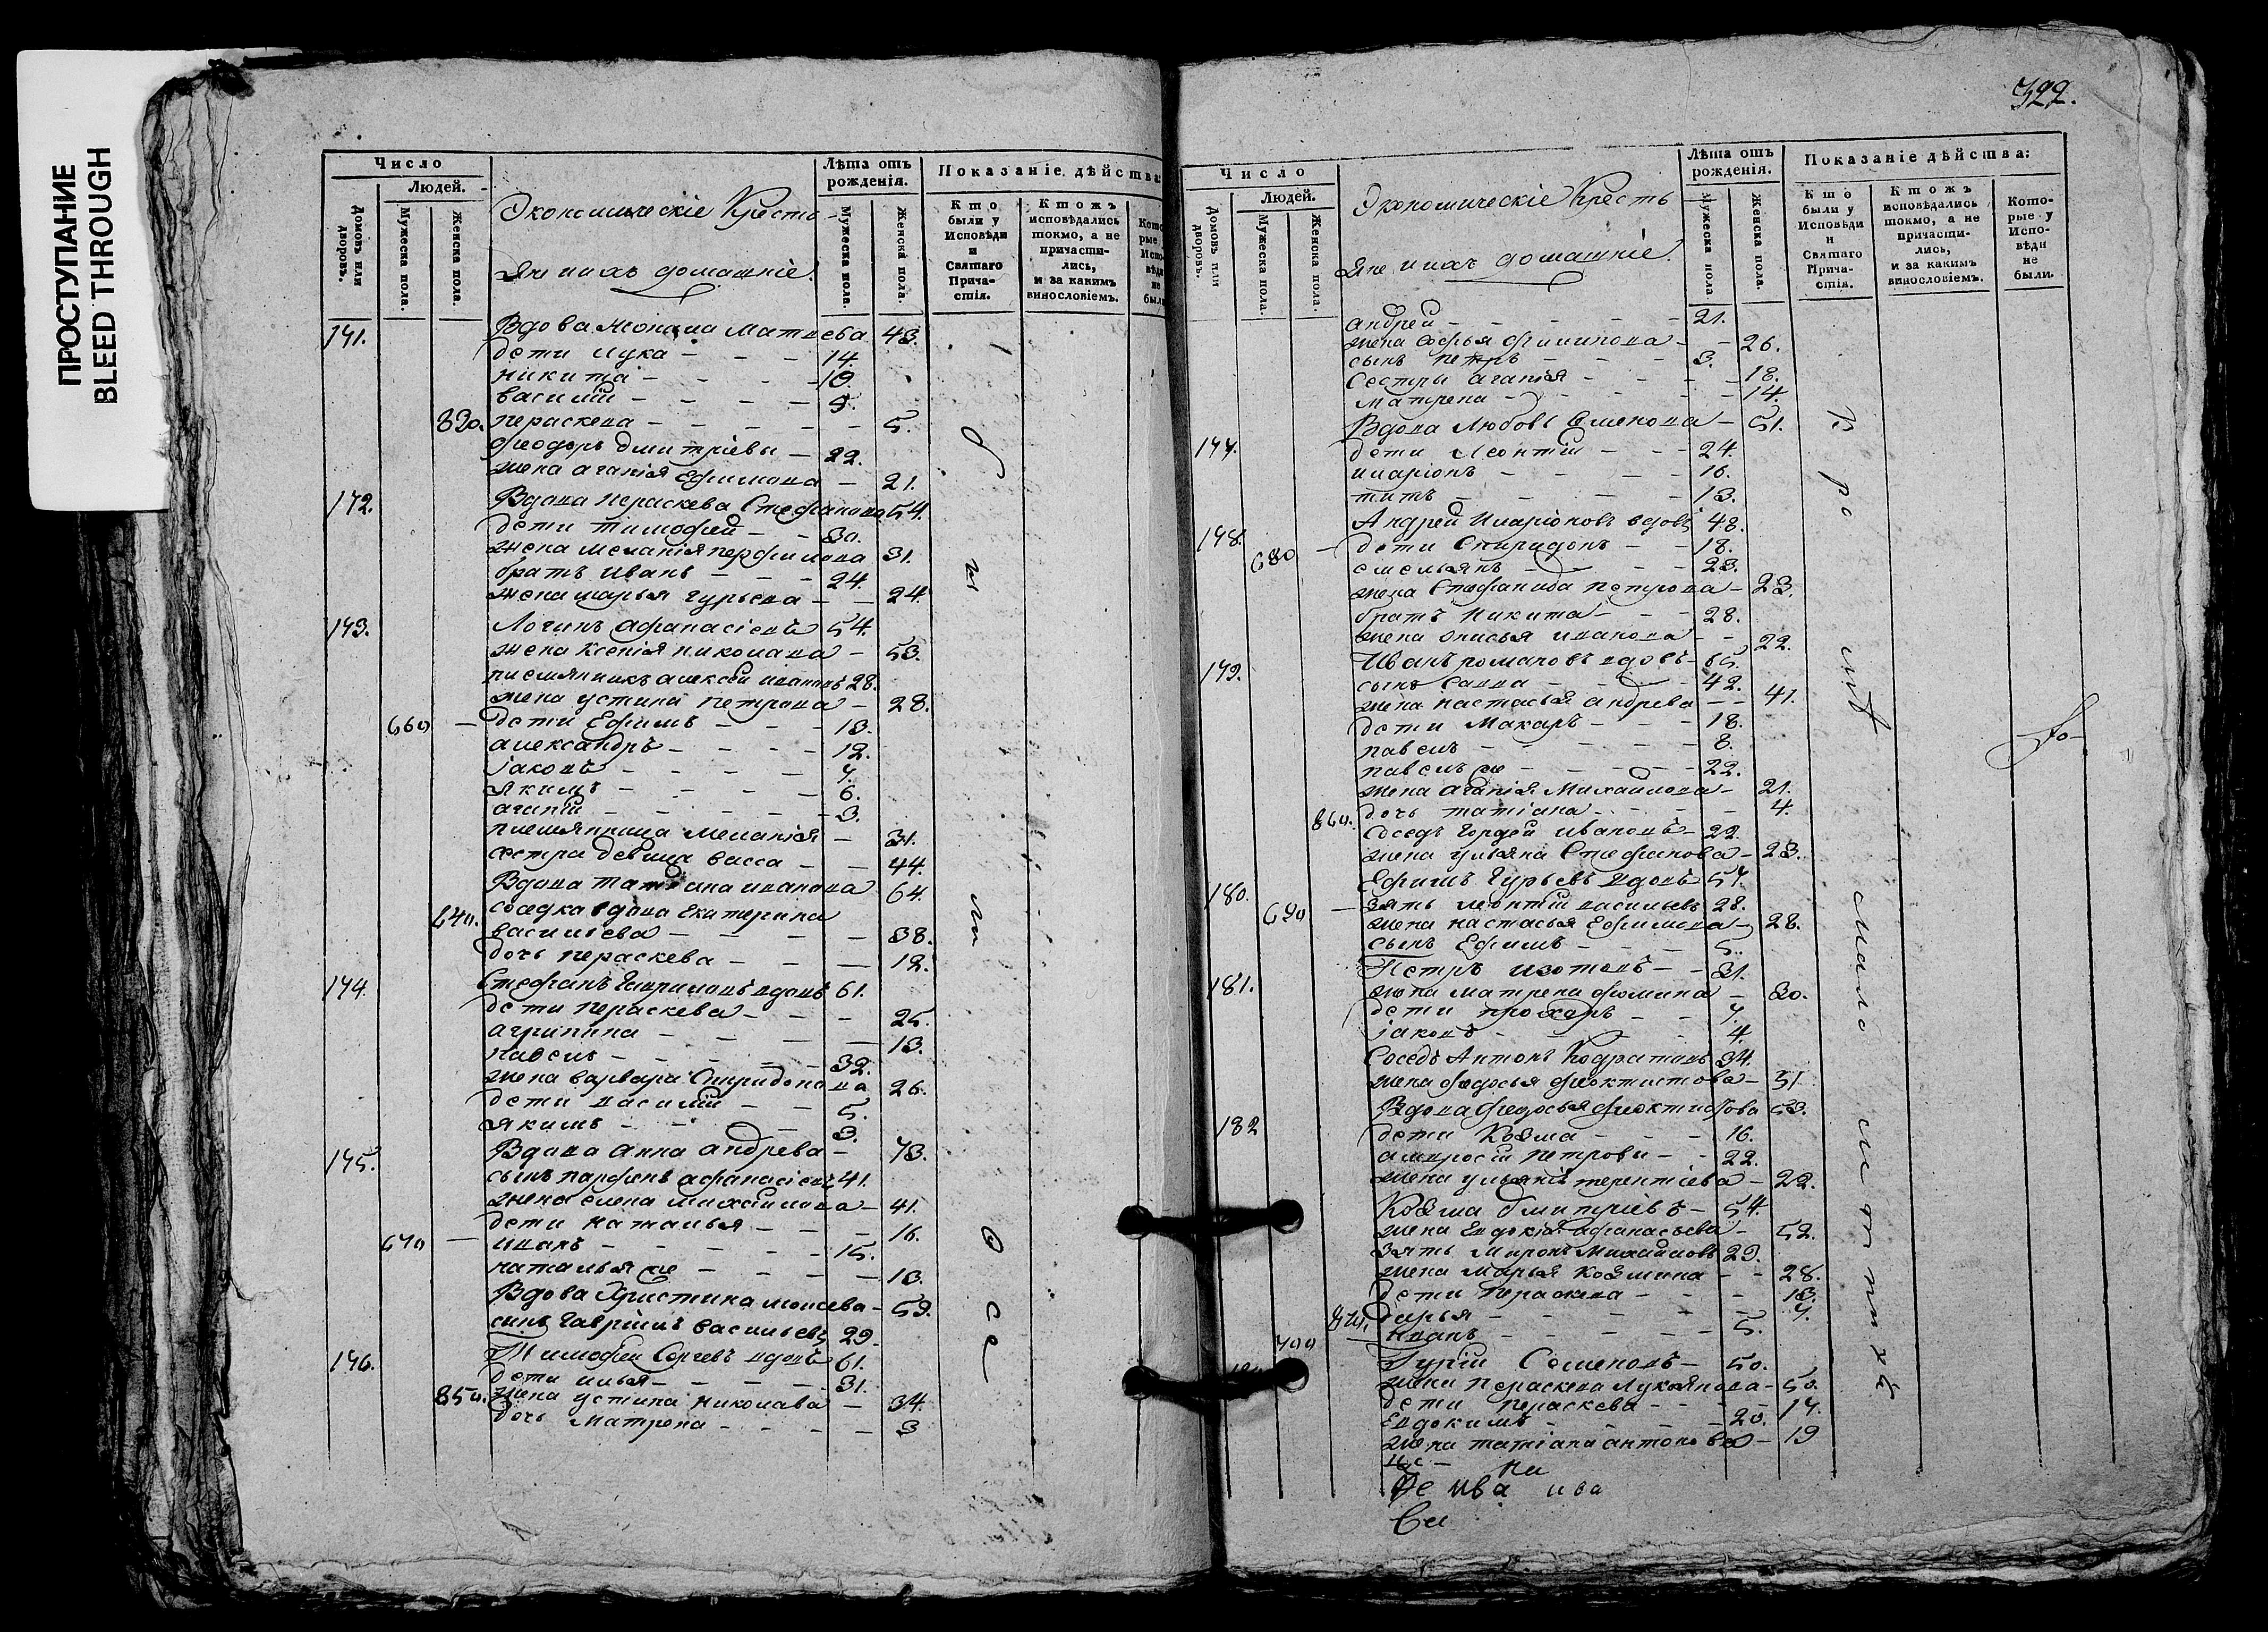 ПРОСТУПАНИЕ
BLEED THROUGH
Число
Людей.
Домовъ или дворовъ.
Мужеска пола.
Женска пола.
Экономическіе Кресть-
яне ихъ домашніе.
Лѣта отъ рожденія.
Мужеска пола.
Женска пола.
Показаніе дѣйства:
Кто были у Исповѣди и Святаго Причастія.
Ктожъ исповѣдались токмо, а не причастились, и за какимъ винословіемъ.
171. Вдова Матвева 43.
дети Лука - - - 14.
Никита - - - - 10.
Василій - - - -
830. Пераскева - - - - - 5.
Феодоръ Дмитріевы - 22.
жена Агапія Ефимова - 21.
172. Вдова Пераскева Стефанова 54.
дети Тимофей - - 30.
жена Меланія Перфилова 31.
братъ Иванъ - - - 24.
жена Марья Гурьева - - 24.
173. Логинъ Афанасіевъ 54.
жена Ксенія Николаева - 53.
племянникъ Алексей Ивановъ 28.
жена Устина Петрова - 28.
660 - дети Ефимъ - - - 13.
Александръ - - - - 12.
Іаковъ - - - - 7.
Якимъ - - - - 6.
Агапій - - - - 3.
племянница Меланія - 31.
сестра девица Васса - - 44.
Вдова Татіана Иванова 64.
640. соседка вдова Екатерина
Василіева - - - - 38.
дочь Пераскева - - - 12.
174. Стефанъ Гавриловъ вдовъ 61.
дети Пераскева - - - 25.
Агрипина - - - - 13.
Павелъ - - - - 32.
жена Варвара Спиридонова 26.
дети Василій - - 5.
Якимъ - - - 3.
175. Вдова Анна Андрева - 73.
сынъ Парфенъ Афанасіевъ 41.
жена Елена Михайлова - 41.
дети Наталья - - - 16.
670 - Иванъ - - - - - 15.
Наталья же - - - - 13.
Вдова Христина Моисева - 59.
сынъ Гавріилъ Васильевъ 29.
176. Тимофей Сергевъ вдовъ 61.
дети Илья - - - - 31.
850. жена Устина Николава - 34.
дочь Матрона - - - - 3
322.
Число
Людей.
Домовъ или дворовъ.
Мужеска пола.
Женска пола.
Экономическіе Кресть
яне ихъ домашніе.
Лѣта отъ рожденія.
Мужеска пола
Женска пола.
Показаніе дѣйства:
Кто были у Исповѣди и Святаго Причастія.
Ктожъ исповѣдались токмо, а не причастились, и за какимъ винословіемъ.
Которые у Исповѣди не были.
Андрей - - - - - 21.
жена Софья Филипова - - 26.
сынъ Петръ - - - 3.
сестры Агапія - - - - 18.
Матрена - - - - - 14.
Вдова Любовь Семенова - 51.
177. дети Леонтій - - - 24.
Иларіонъ - - - - 16.
Титъ - - - - - 13.
Андрей Иларіоновъ вдовъ 48.
178. 680 - дети Спиридонъ - - 18.
Емельянъ - - - - 23.
жена Стефанида Петрова - 23.
братъ Никита - - - 28.
жена Анисья Иванова - - 22.
179. Иванъ Романовъ вдовъ - 65.
сынъ Савва - - - - 42.
жена Настасья Андрева - - 41.
дети Макаръ - - - 18.
Павелъ - - - - - 8.
Павелъ же - - - - - 22.
жена Агапія Михайлова - 21.
860. дочь Татіана - - - - 4.
соседъ Гордей Ивановъ - 22.
жена Ульяна Стефанова - 23.
180. Ефимъ Гурьевъ вдовъ 57.
690 - зять Леонтій Васильевъ 28.
жена Настасья Ефимова - 28.
сынъ Ефимъ - - - - 5.
181. Петръ Изотовъ - - 31.
жена Матрена Фомина - 30.
дети Прохоръ - - - 7.
Іаковъ - - - - 4.
соседъ Антонъ Кодратовъ 34.
жена Федосья Феоктистова - 31
Вдова Федосья Феоктистова 53.
182 дети Козма - - - 16.
Амвросій Петровы - - 22.
жена Ульянія Терентіева - 22.
Козма Дмитріевъ - 54.
жена Евдокія Афанасьева - 52.
зять Миронъ Михайловъ 29.
жена Марья Козмина - - 28.
дети Пераскева - - - 13.
870. Дарья - - - - - 7.
700 - Иванъ - - - - - 5.
Гурій Семеновъ - 50.
жена Пераскева Лукьянова - 50.
дети Пераскева - - - - 17.
Евдокимъ - - - - 20.
жена Татіана Антонова - 19